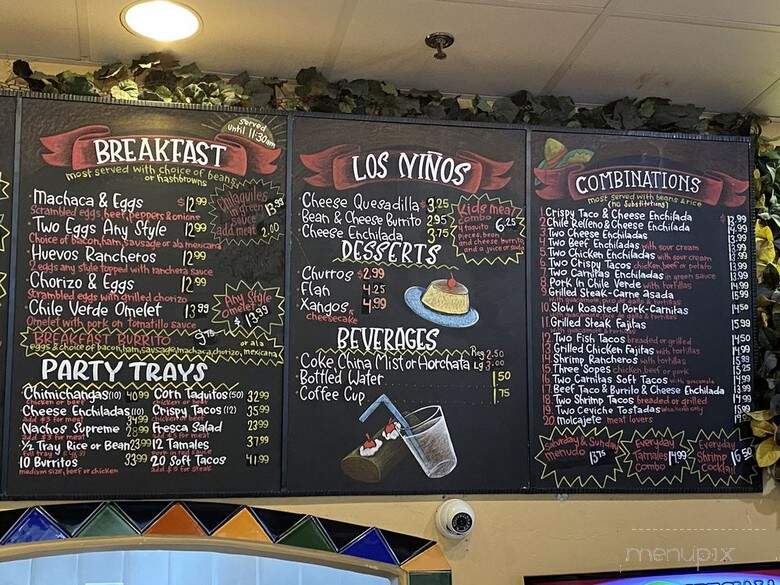 Served until 11:30am
BREAKFAST
most served with choice of beans or hashbrowns
Machaca & Eggs $12.99
Scrambled eggs, beef, peppers & onions
Two Eggs Any Style 12.99
Choice of bacon, ham, sausage or ala mexicana
Huevos Rancheros 12.99
2 eggs any style topped with ranchera sauce
Chorizo & Eggs 12.99
Scrambled eggs with grilled chorizo
Chile Verde Omelet 13.99
Omelet with pork on tomatillo sauce
BREAKFAST BURRITO
eggs & choice of bacon, ham, sausage, machaca, chorizo, or ala mexicana
Chilaquiles in green sauce 13.99
add meat 2.00
Any Style omelet $13.99
PARTY TRAYS
Chimichangas (10) 40.99
chicken or beef
Cheese Enchiladas (10) 34.99
add $3 for meat
Nachos Supreme
add $3 for meat
½ Tray Rice or Bean 23.99
10 Burritos 33.99
medium size, beef or chicken
Corn Taquitos (50) 32.99
chicken or beef
Crispy Tacos (12) 35.99
chicken or beef
Fresca Salad 23.99
add $5 for meat
12 Tamales 37.99
pork in red sauce
20 Soft Tacos 41.99
add $5 for steak
LOS NIÑOS
Cheese Quesadilla $3.25
Bean & Cheese Burrito 2.95
Cheese Enchilada 3.75
Kids meal combo 6.25
1 taquito
pieces, bean
and cheese burrito
and a juice or soda
DESSERTS
Churros $2.99
Flan 4.25
Xangos 4.99
cheesecake
BEVERAGES
Coke China Mist or Horchata Reg 2.50 Lg 3.00
Bottled Water .50
Coffee Cup .75
COMBINATIONS
most served with beans & rice
(no substitutions)
1 Crispy Taco & Cheese Enchilada
2 Chile Relleno & Cheese Enchilada
3 Two Cheese Enchiladas
4 Two Beef Enchiladas with sour cream
5 Two Chicken Enchiladas with sour cream
6 Two Crispy Tacos chicken, beef or potato
7 Two Carnitas Enchiladas in green sauce
8 Pork in Chile Verde with tortillas
9 Grilled Steak-Carne Asada
10 Slow Roasted Pork-Carnitas
11 Grilled Steak Fajitas 15.99
12 Two Fish Tacos breaded or grilled 14.50
13 Grilled Chicken Fajitas with tortillas
14 Shrimp Rancheros with tortillas
15 Three Sopes chicken, beef or pork
16 Two Carnitas Soft Tacos with guacamole
17 Beef Taco & Burrito & Cheese Enchilada
18 Two Shrimp Tacos breaded or grilled
19 Two Ceviche Tostadas
20 Molcajete meat lovers
Saturday & Sunday menudo 13.75
Everyday Tamales Combo 14.99
Everyday Shrimp Cocktail 16.50
menupix